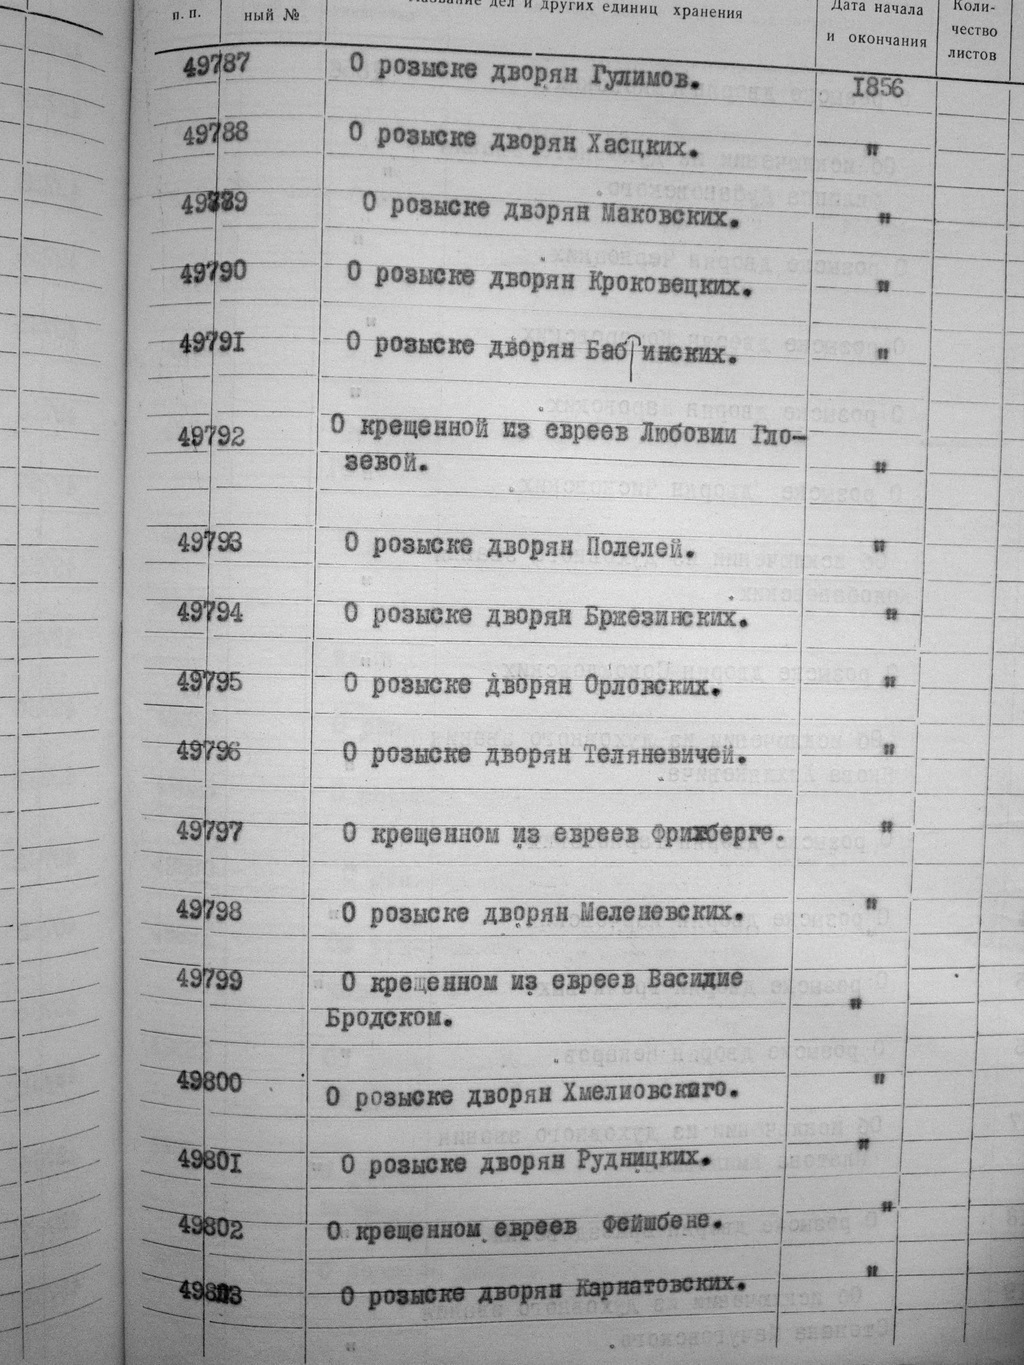 п. п.
ный №
Название дел и других единиц хранения
Дата начала
и окончания
Коли-
чество
листов
49787 О розыске дворян Гулимов. 1856
49788 О розыске дворян Хасцких. "
49789 О розыске дворян Маковских. "
49790 О розыске дворян Кроковецких. "
49791 О розыске дворян Бабинских. "
49792 О крещенной из евреев Любовии Гло-
зевой. "
49793 О розыске дворян Полелей. "
49794 О розыске дворян Бржезинских. "
49795 О розыске дворян Орловских. "
49796 О розыске дворян Теляневичей. "
49797 О крещенном из евреев "
49798 О розыске дворян Меленевских. "
49799 О крещенном из евреев Василие
Бродском. "
49800 О розыске дворян Хмелиовскаго. "
49801 О розыске дворян Рудницких. "
49802 О крещенном евреев Фейшбене. "
49803 О розыске дворян Карнатовских. "